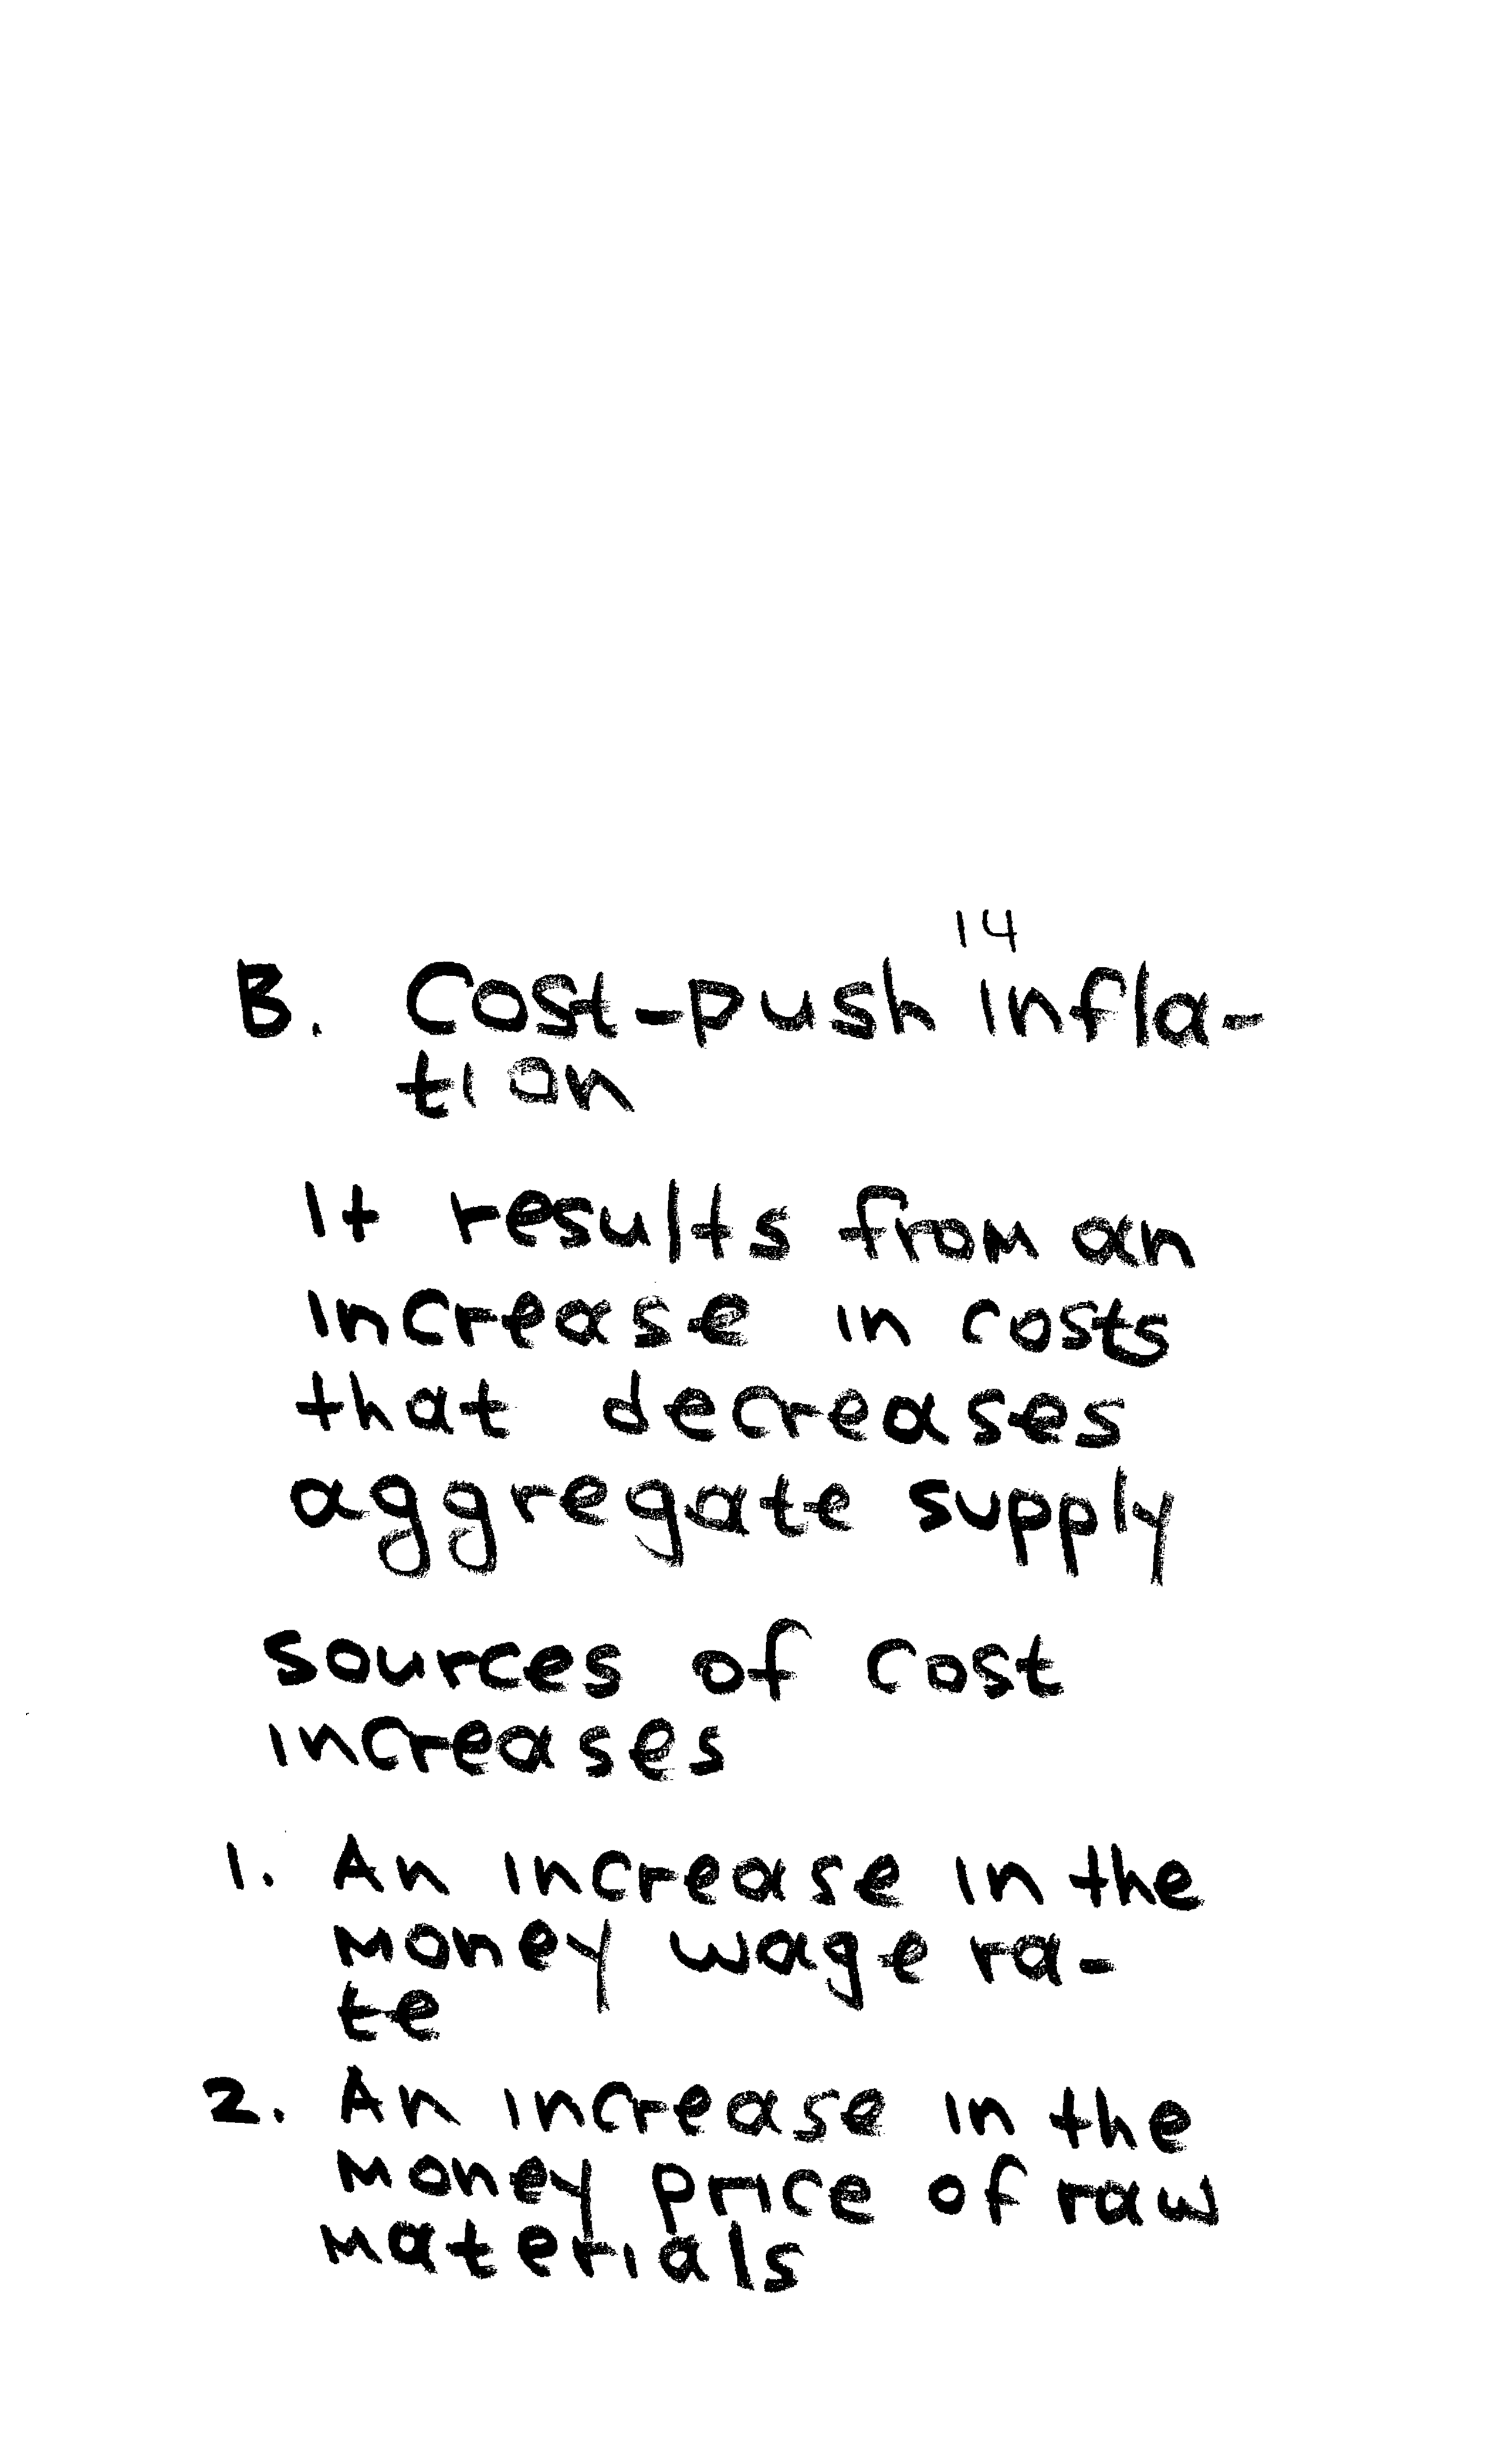 14
B. Cost-push infla-
tion
It results from an
increase in costs
that decreases
aggregate supply
sources of cost
increases
1. An increase in the
money wage ra-
te
2. An increase in the
money price of raw
materials